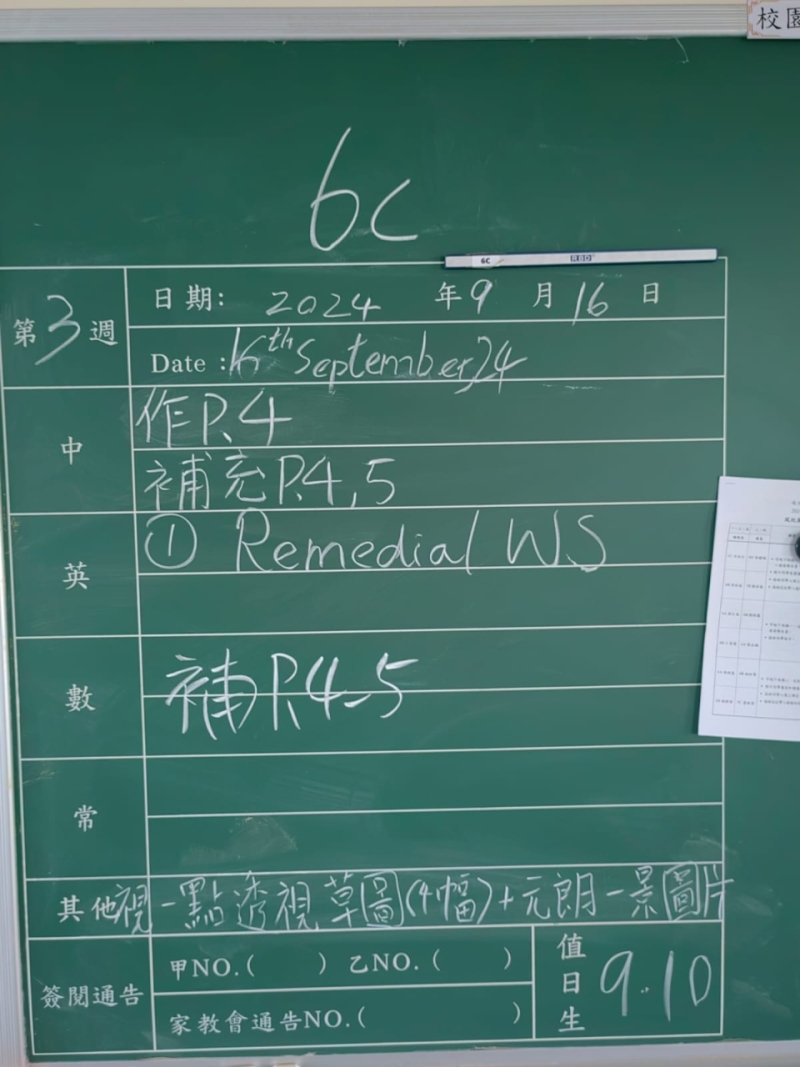 校園
6C
6C RSD
第3週
日期: 2024 年9 月16 日
Date :16th September 24
中
作P.4
補充P.4,5
英
① Remedial WS
數
補P.4-5
常
其他 視 一點透視草圖(4幅)+元朗一景圖片
簽閱通告
甲NO.( ) 乙NO.( )
家教會通告NO.( )
值日生
9.10